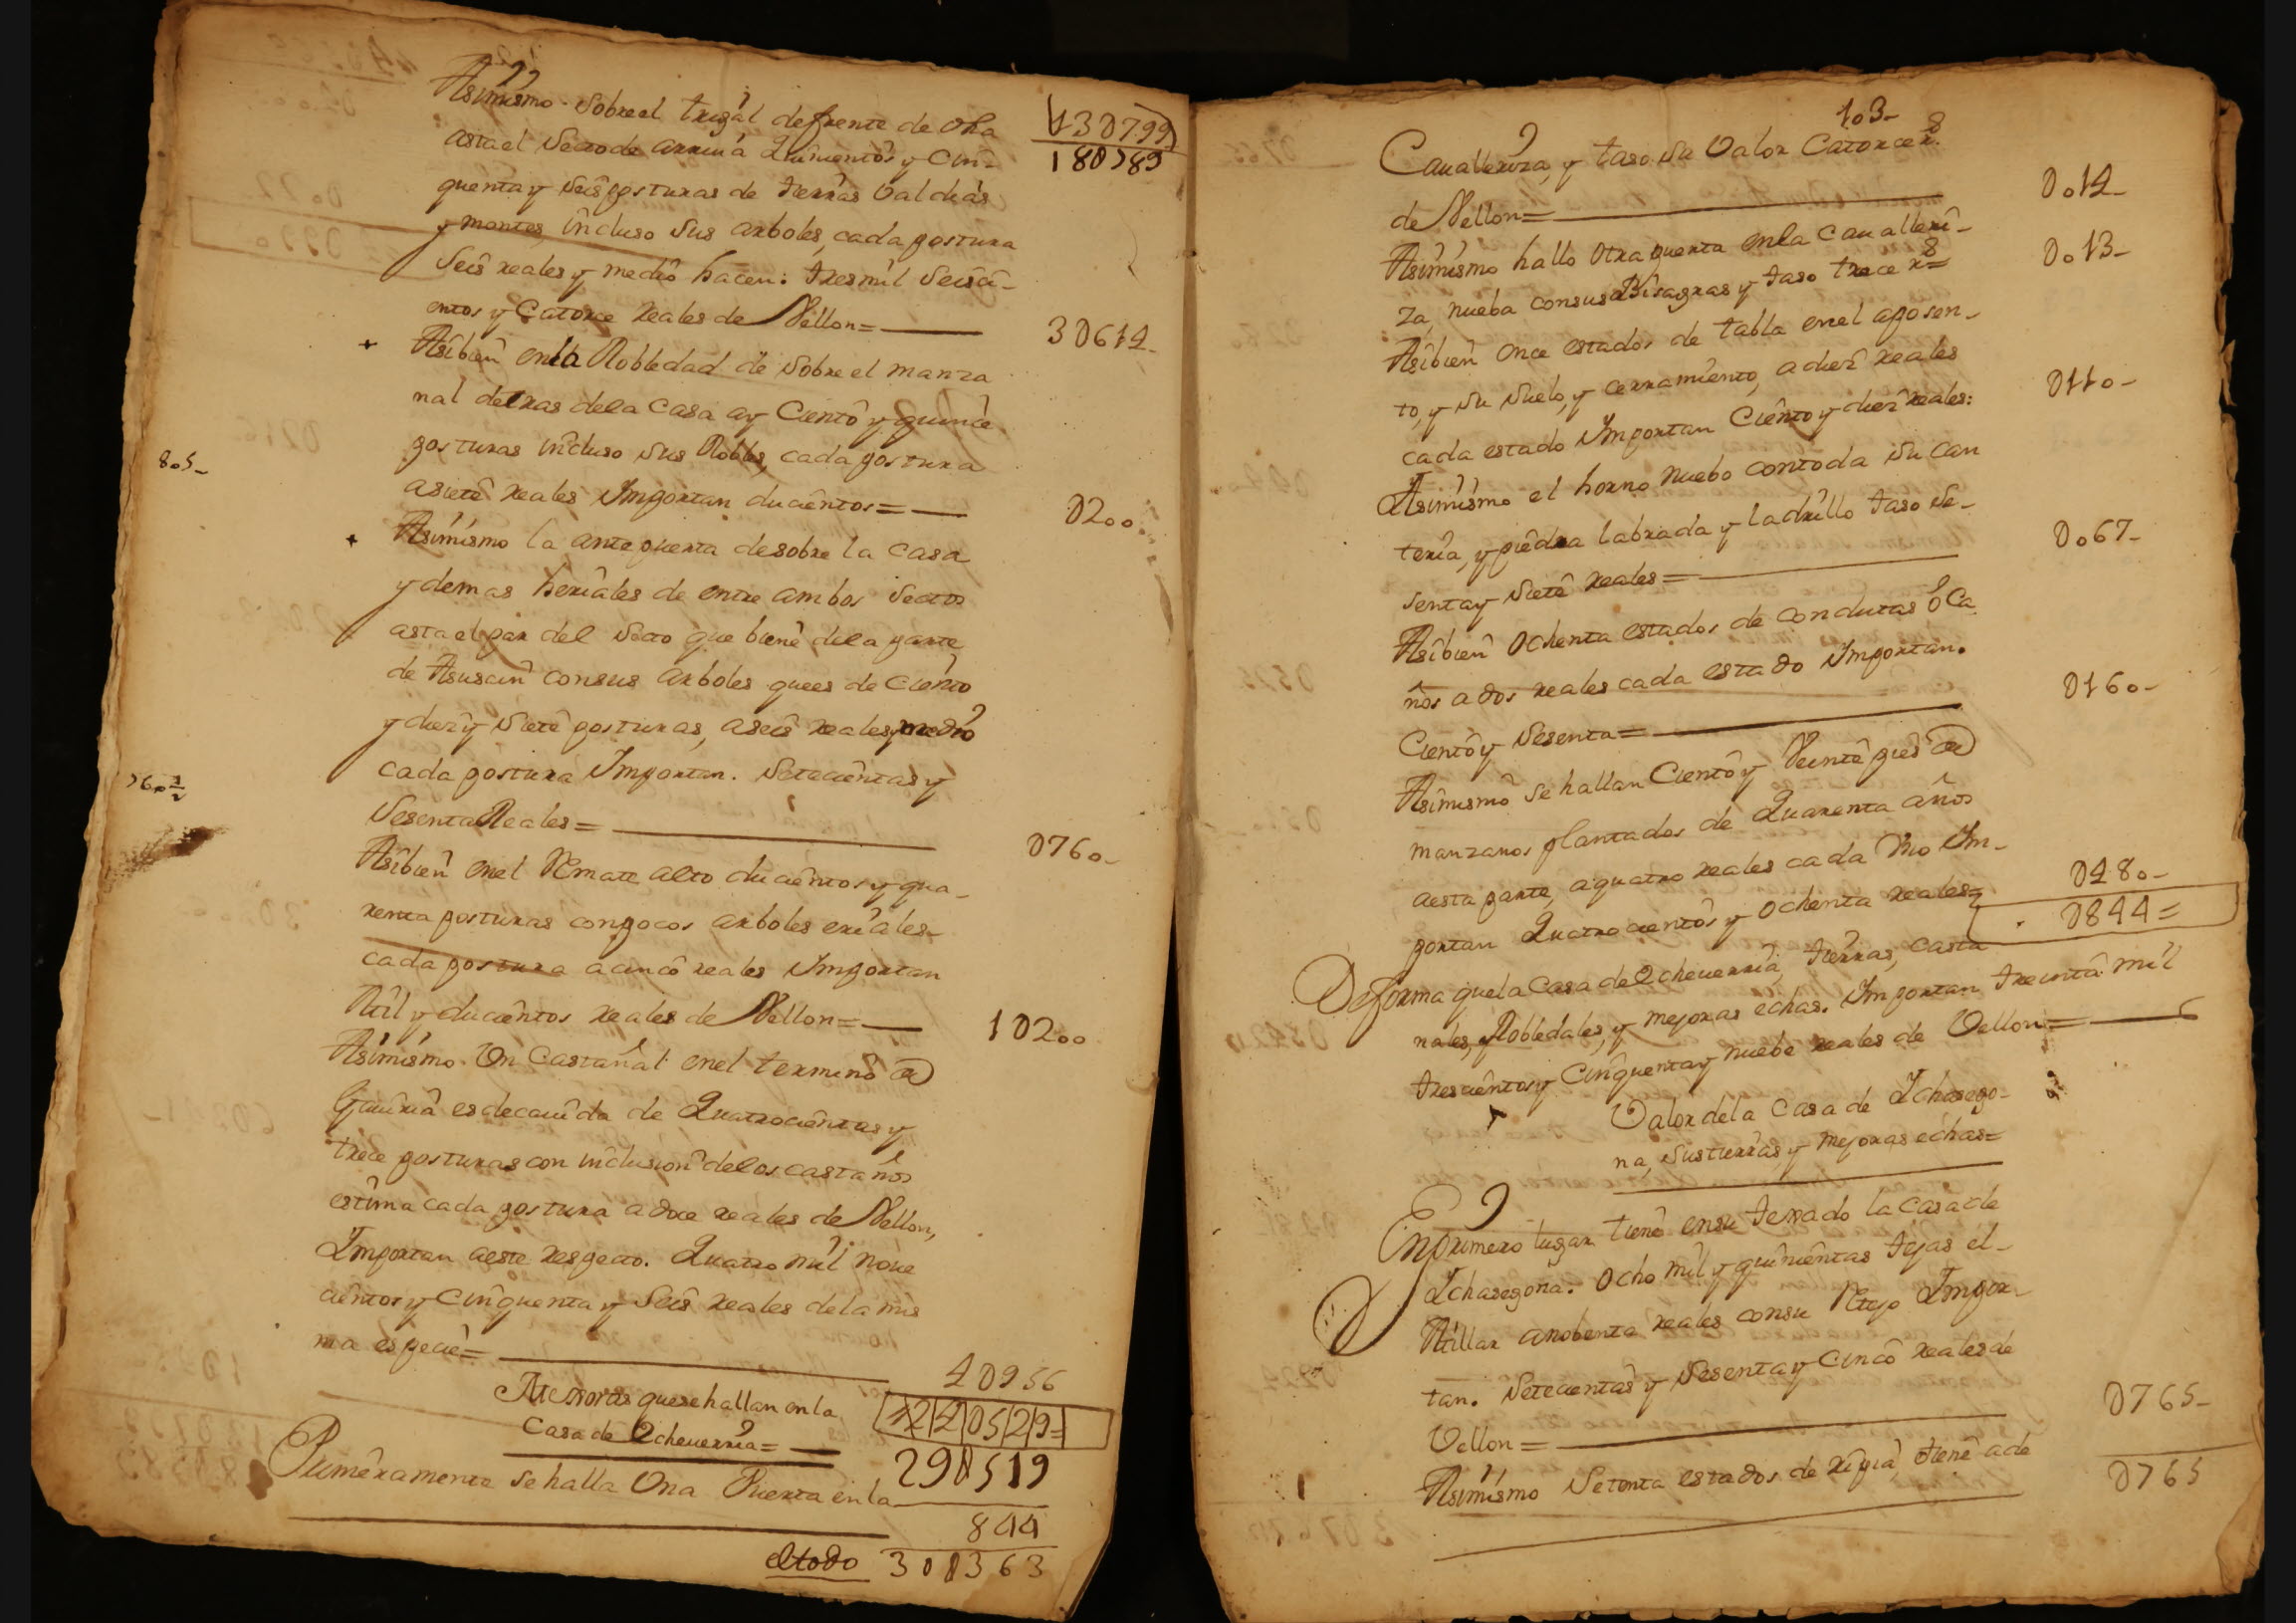 Asimismo sobre el trigal defrente de Oha
asta el Secto de arriua Quinientos y cin-
quenta y seis posturas de tierras Valdias
y montes, incluso sus arboles, cada postura
Seis reales y medio hacen: tresmil Seisci-
entos y Catorce Reales de Vellon=
130799
180789
30614-
Asibien en la Robledad de sobre el manza
nal detras dela Casa ay Ciento y quince
posturas incluso sus Robles, cada postura
a siete reales Importan ducientos=
805-
0200
Asimismo la antepuerta desobre la Casa
y demas heriales de entre ambos Sectos
asta el par del Secto que biene dela parte
de Asuscun consus arboles quees de ciento
y diez y siete posturas, a seis reales y medio
cada postura Importan. Setecientas y
Sesenta Reales=
760 1/2
0760-
Asibien enel Remate alto ducientos y qua-
renta posturas conpocos arboles eriales-
cada postura a cinco reales Importan
Mil y ducientos reales de Vellon=
10200
Asimismo Un Castañal enel termino de
es decauida de Quatrocientas y
trece posturas con inclusion delos castaños
estima cada postura a doce reales de Vellon,
Importan aeste respecto. Quatro mil nove
cientos y Cinquenta y Seis reales dela mis
ma especie=
40956
Memorias quese hallan en la
Casa de Echeuerria=
1240529=
Primeramente se halla Una Puerta en la
290519
844
el todo 300363
103-
Caualleriza, y taso su Valor Catorce rs.
de Vellon=
0014-
Asimismo hallo Otra puerta en la Caualleri-
za, nueba consus Bisagras y taso trece rs=
0013-
Asibien Once estados de tabla enel aposen-
to, y su suelo, y cerramiento, a diez reales
cada estado Importan Ciento y diez reales:
0110-
Asimismo el horno nuebo contoda su Can
teria, y piedra labrada y ladrillo taso Se-
senta y siete reales=
0067-
Asibien Ochenta estados de condutas o Ca
ños a dos reales cada estado Importan.
Ciento y Sesenta=
0160-
Asimismo se hallan Ciento y Veinte pies de
manzanos plantados de Quarenta años
aesta parte, a quatro reales cada Uno Im-
portan Quatrocientos y ochenta reales=
0480-
0844=
De forma quela Casa de Echeuerria, tierras, Casta
nales, y Robledales, y mejoras echas. Importan treinta mil
trescientos y Cinquenta y nuebe reales de Vellon=
Valor dela Casa de Ichasego-
na, sus tierras, y mejoras echas=
En primero lugar tiene ensu tejado la Casa de
Ichasegona: Ocho mil y quinientas tejas el
Millar a nobenta reales consu Ripo Impor-
tan. Setecientas y Sesenta y Cinco reales de
Vellon=
0765-
Asimismo Setenta estados de ripia, tiene a de
0765